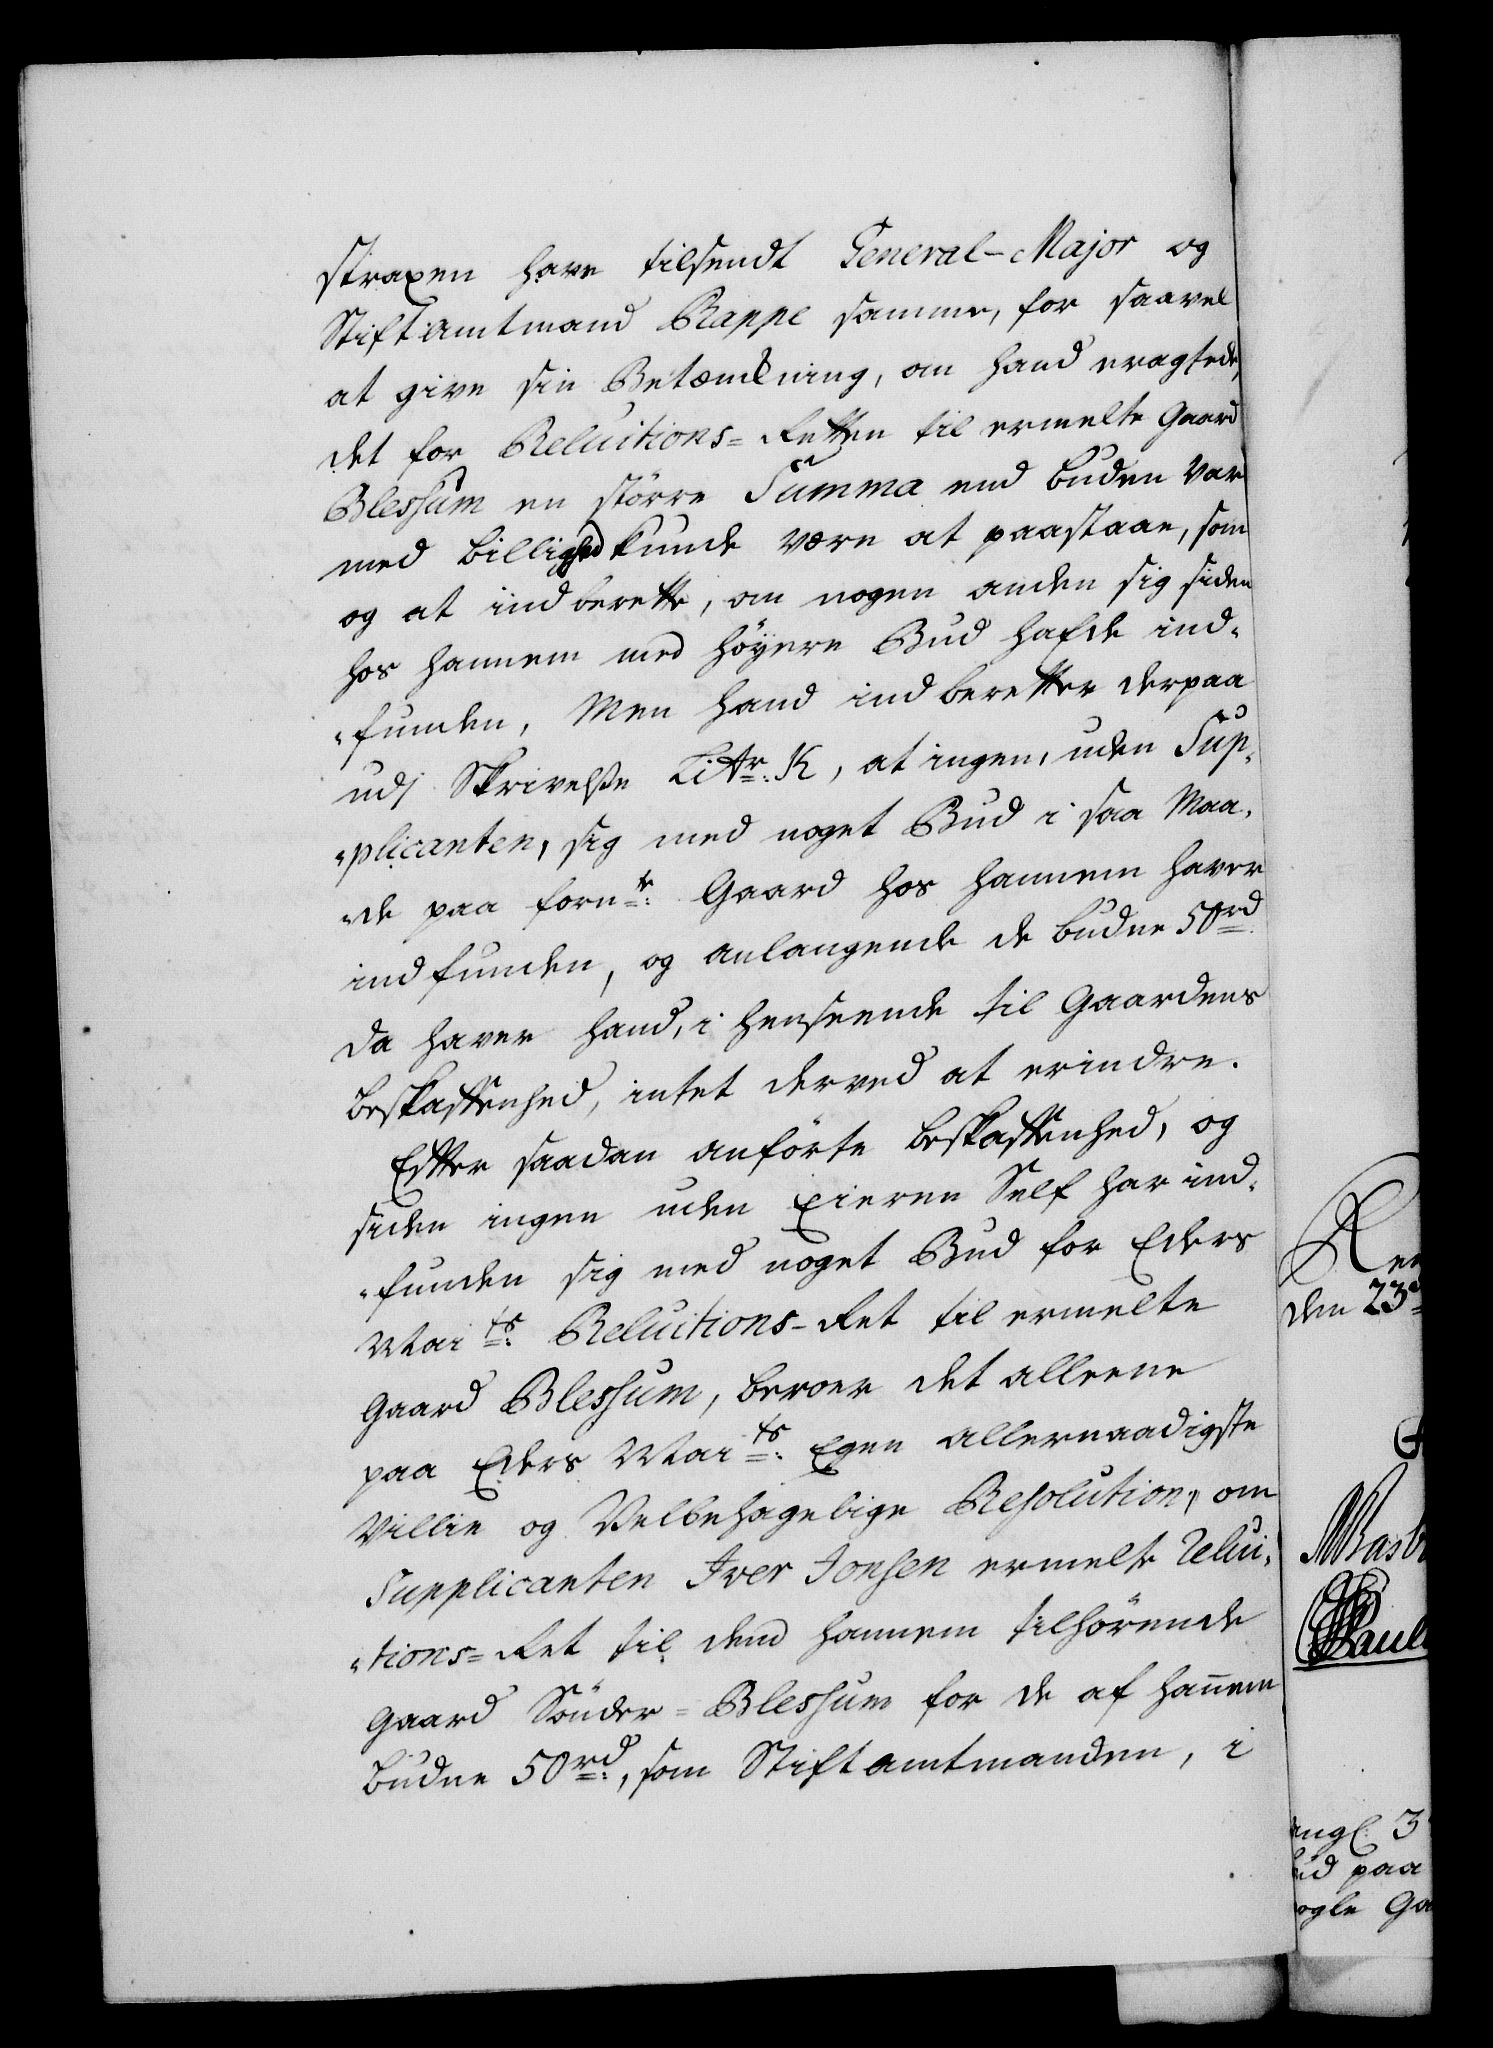 straxen have tilsendt General-Major og
Stiftamtmand Rappe samme, for saavel
at give sin Betænkning, om hand eragtede,
det for Reluitions=Retten til ermelte Gaard
Blessum en större Summa end buden var
med billighed kunde være at paastaae, som
og at indberette, om nogen anden sig siden
hos hannem med höyere Bud hafde ind-
-funden, Men hand indberetter derpaa
udj Skrivelse Litr: K, at ingen, uden Sup-
-plicanten, sig med noget Bud i saa Maa-
-de paa fornte: Gaard hos hannem haver
indfunden, og anlangende de budne 50rd
da haver hand, i henseende til Gaardens
beskaffenhed, intet derved at erindre.
Efter saadan anförte beskaffenhed, og
siden ingen uden Eieren Self har ind-
-funden sig med noget Bud for Eders
Maits: Reluitions-Ret til ermelte
Gaard Blessum, beroer det alleene
paa Eders Maits: Egen allernaadigste
Villie og Velbehagelige Resolution, om
Supplicanten Iver Jonsen ermelte Relui-
-tions=Ret til dend hannem tilhörende
Gaard Sönder=Blessum for de af hannem
budne 50rd:, som Stiftamtmanden, i
den 23
ud paa